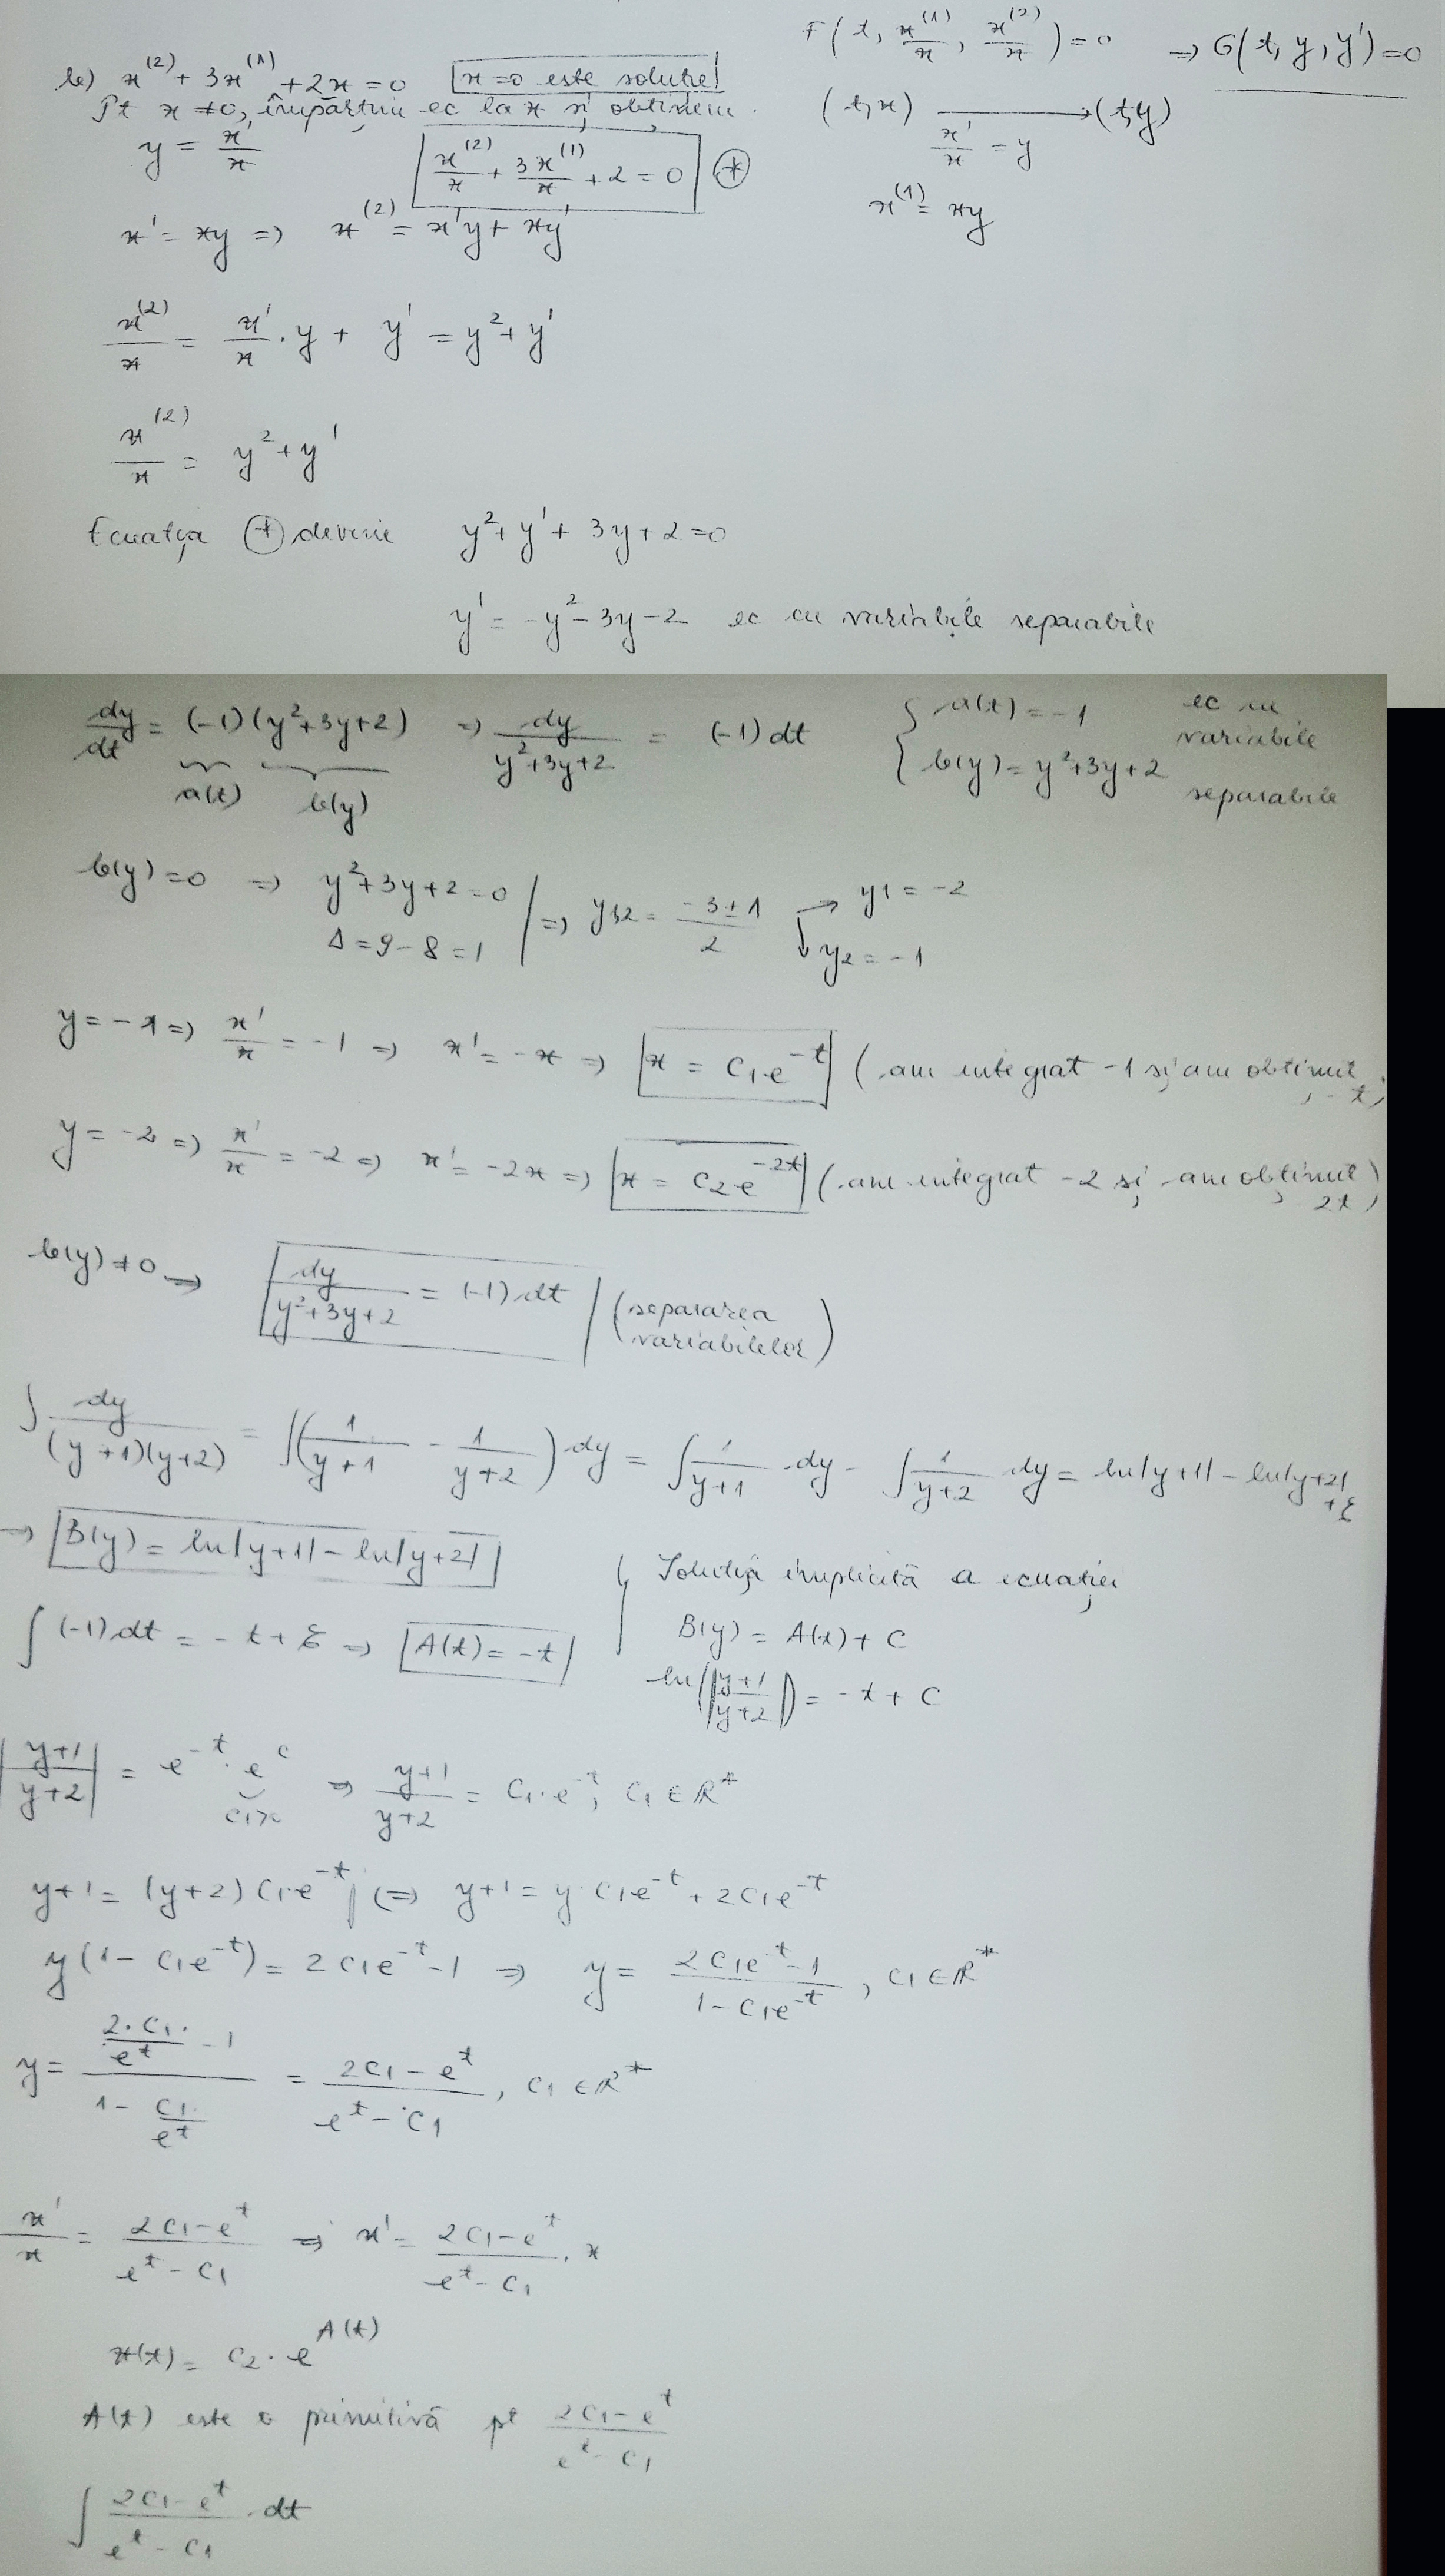 b) x^(2) + 3x^(1) + 2x = 0 x=0 este soluție
F(t, x^(1)/x, x^(2)/x) = 0 => G(t, y, y') = 0
Pt x ≠ 0, împărțim ec la x și obținem.
(t, x) → (t, y)
x'/x = y
y = x'/x
x^(2)/x + 3x^(1)/x + 2 = 0 (*)
x^(1) = xy
x' = xy => x^(2) = x'y + xy'
x^(2)/x = x'/x · y + y' = y² + y'
x^(2)/x = y² + y'
Ecuația (*) devine y² + y' + 3y + 2 = 0
y' = -y² - 3y - 2 ec cu variabile separabile
dy/dt = (-1)(y²+3y+2) => dy/(y²+3y+2) = (-1) dt
a(t) b(y)
{ a(t) = -1
b(y) = y²+3y+2
ec cu variabile separabile
b(y) = 0 => y²+3y+2 = 0 | => y1,2 = (-3±1)/2 → y1 = -2
Δ = 9 - 8 = 1
↳ y2 = -1
y = -1 => x'/x = -1 => x' = -x => x = C1·e^(-t) (am integrat -1 și am obținut -t)
y = -2 => x'/x = -2 => x' = -2x => x = C2·e^(-2t) (am integrat -2 și am obținut 2t)
b(y) ≠ 0 => dy/(y²+3y+2) = (-1) dt (separarea variabilelor)
∫ dy/((y+1)(y+2)) = ∫(1/(y+1) - 1/(y+2)) dy = ∫ 1/(y+1) dy - ∫ 1/(y+2) dy = ln|y+1| - ln|y+2| + C
=> B(y) = ln|y+1| - ln|y+2|
∫ (-1) dt = -t + C => A(t) = -t
Soluția implicită a ecuației
B(y) = A(t) + C
ln(|(y+1)/(y+2)|) = -t + C
|(y+1)/(y+2)| = e^(-t) · e^c => (y+1)/(y+2) = C1·e^(-t), C1 ∈ R*
y+1 = (y+2) C1·e^(-t) (=) y+1 = y·C1e^(-t) + 2C1e^(-t)
y(1 - C1e^(-t)) = 2C1e^(-t) - 1 => y = (2C1e^(-t) - 1)/(1 - C1e^(-t)), C1 ∈ R*
y = (2·C1·/e^t - 1)/(1 - C1·/e^t) = (2C1 - e^t)/(e^t - C1), C1 ∈ R*
x'/x = (2C1 - e^t)/(e^t - C1) => x' = (2C1 - e^t)/(e^t - C1) · x
x(t) = C2 · e^A(t)
A(t) este o primitivă pt (2C1 - e^t)/(e^t - C1)
∫ (2C1 - e^t)/(e^t - C1) · dt